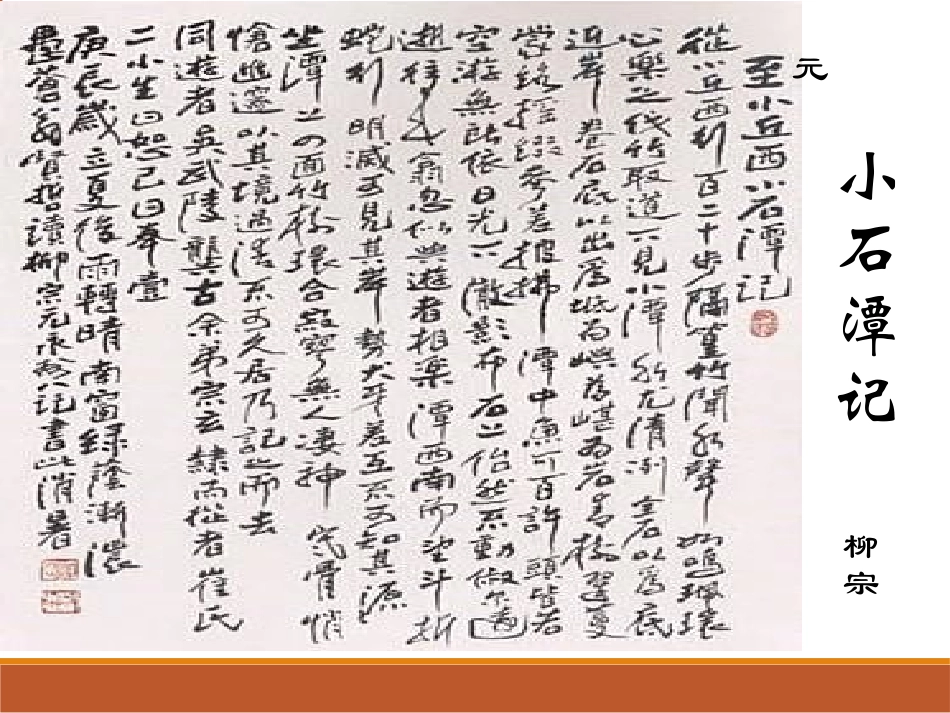 小石潭记
柳宗
元
至小丘西小石潭记
從小丘西行百二十步隔篁竹聞水聲如鳴珮環
心樂之伐竹取道下見小潭水尤清冽全石以為底
近岸卷石底以出為坻為嶼為嵁為岩青樹翠蔓
蒙絡搖綴參差披拂潭中魚可百許頭皆若
空游無所依日光下澈影布石上佁然不動俶尔遠
逝往來翕忽似與遊者相樂潭西南而望斗折
蛇行明滅可見其岸勢犬牙差互不可知其源
坐潭上四面竹樹環合寂寥無人凄神寒骨悄
愴幽邃以其境過清不可久居乃記之而去
同遊者吳武陵龔古余弟宗玄隸而從者崔氏
二小生曰恕己曰奉壹
庚辰歲立夏後雨轉晴南窗綠蔭漸濃
讀柳宗元永州八記書此消暑